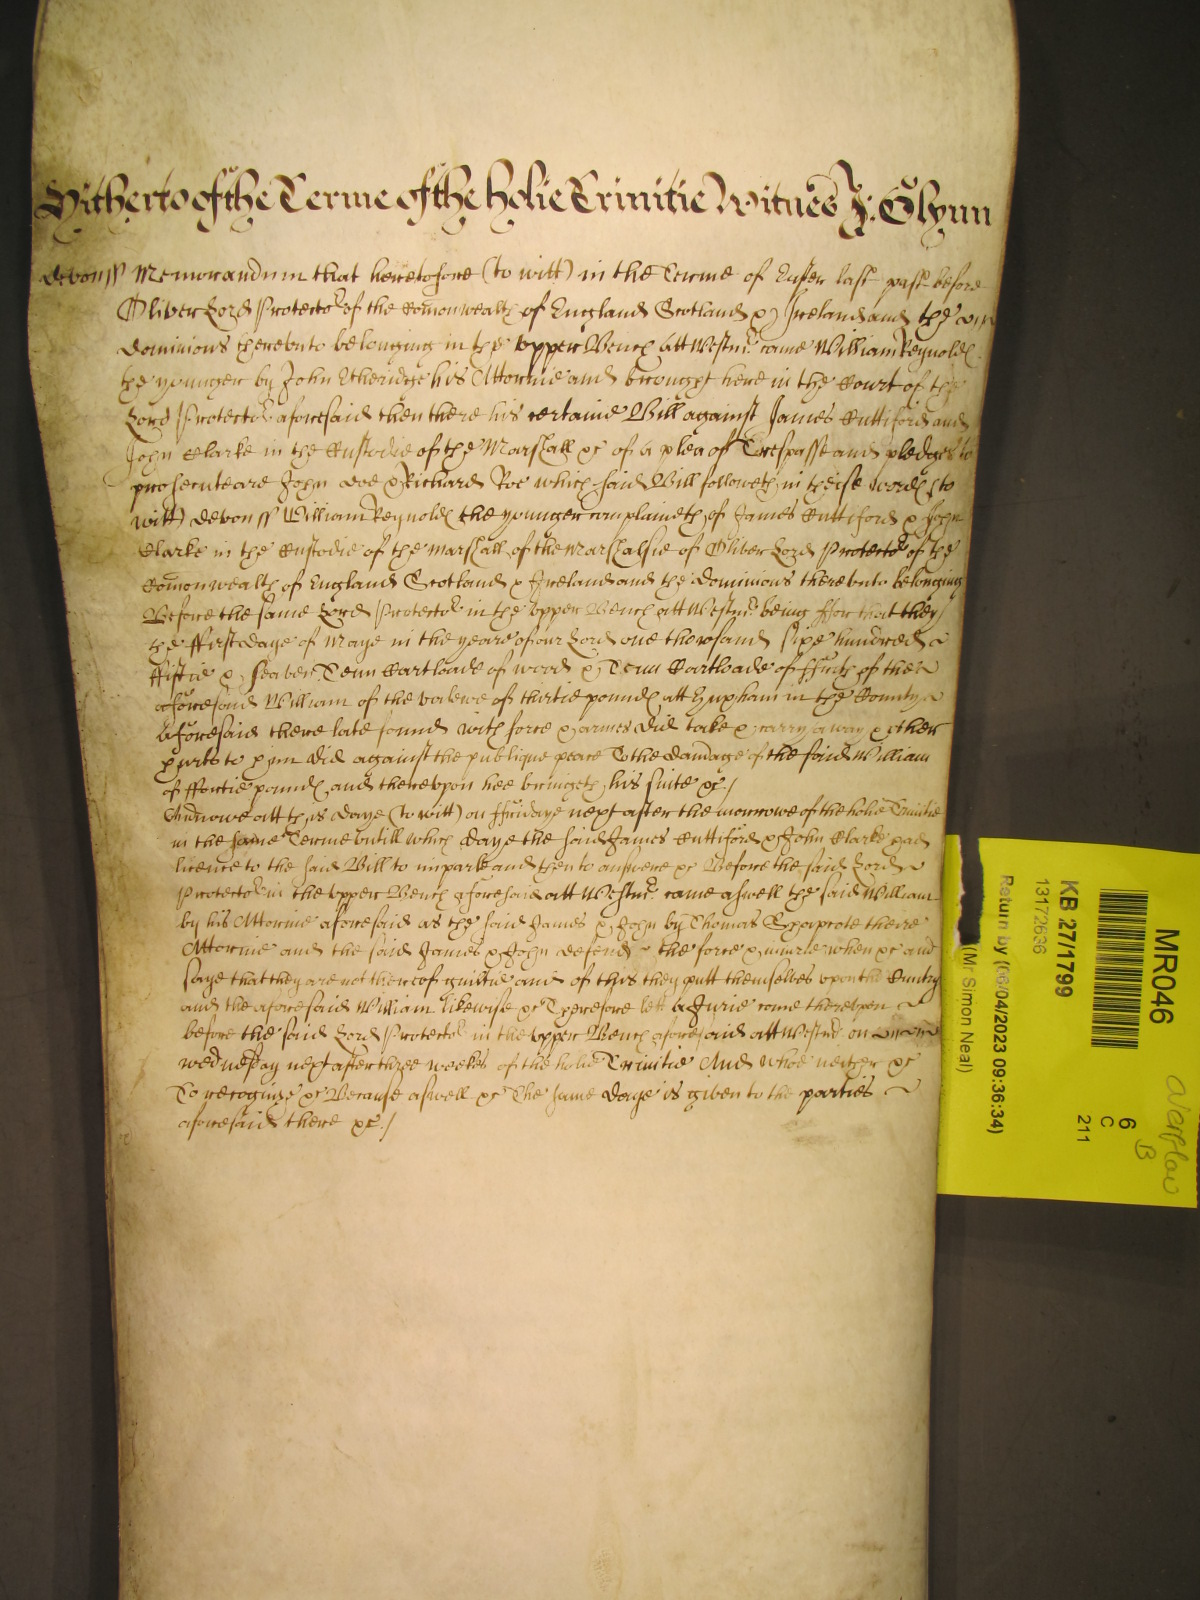 Hitherto of the Terme of the holie Trinitie Witnes J: Glynn
Devon ss Memorandum that heretofore (to witt) in the Terme of Easter last past before
Oliver Lord Protector of the Comonwealth of England Scotland & Ireland and the
dominions therevnto belonging in the vpper Bench att Westmr came William Reynolds
the younger by John Etheridge his Attornie and brought here in the Court of the
Lord Protector aforesaid then there his certaine Bill against James Cuttiford and
John Clarke in the Custodie of the Marshall &c of a plea of Trespasse and pledges to
prosecute are John Doe & Richard Roe which said Bill followeth in theise words (to
witt) Devon ss William Reynolds the younger complaineth of James Cuttiford & John
Clarke in the Custodie of the Marshall of the Marshalsie of Oliver Lord Protector of the
Comonwealth of England Scotland & Ireland and the dominions therevnto belonging
Before the same Lord Protector in the vpper Bench att Westmr being ffor that they
the ffirst daye of Maye in the yeare of our Lord one thousand sixe hundred
ffiftie & seaven Tenn Cartloads of wood & Tenn Cartloads of ffurse of the
aforesaid William of the valewe of thirtie pounds att Huxham in the County
aforesaid there late found with force & armes did take & carry away & other
hurts to him did against the publique peace To the damage of the said William
of ffortie pounds and therevpon hee bringeth his suite &c./
And nowe att this daye (to witt) on ffridaye next after the morrowe of the holie Trinitie
in the same Terme vntill which daye the said James Cuttiford & John Clarke had
licence to the said Bill to imparle and then to answere &c Before the said Lord
Protector in the vpper Bench aforesaid att Westmr came aswell the said William
by his Attornie aforesaid as the said James & John by Thomas theire
Attornie and the said James & John defend the force & iniurie when &c and
saye that they are not thereof guiltie and of this they putt themselves vpon the Cuntry
and the aforesaid William likewise &c Therefore lett a Jurie come therevpon
before the said Lord Protector in the vpper Bench aforesaid att Westmr on
wednesday next after three weekes of the holie Trinitie And whoe neither &c
To recognize &c Because aswell &c The same daye is given to the parties
aforesaid there &c./
MR046
KB 27/1799
13172636
Return by (06/04/2023 09:36:34)
(Mr Simon Neal)
6
C
211
overflow
B